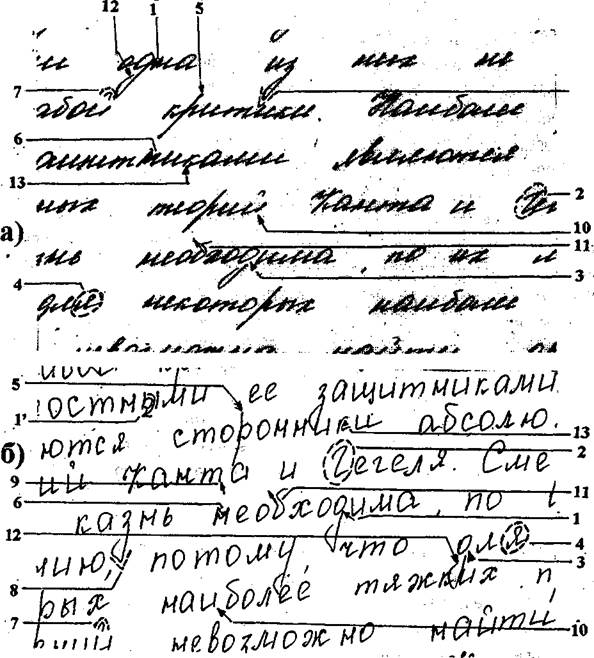 12 1 5
ни одна из них не
7
жбой критики. Наиболее
6
защитниками являются
13
ных теорий Канта и Ге 2
10
а) знь необходима по их л 11
3
4 для некоторых наиболее
невозможно найти
5
остными ее защитниками
1
ются сторонники абсолю. 13
б) ий Канта и Гегеля. Сме 2
9
6 казнь необходима, по 11
1
12 нию, потому, что для 4
3
8 рых наиболее тяжких п
7 невозможно найти 10